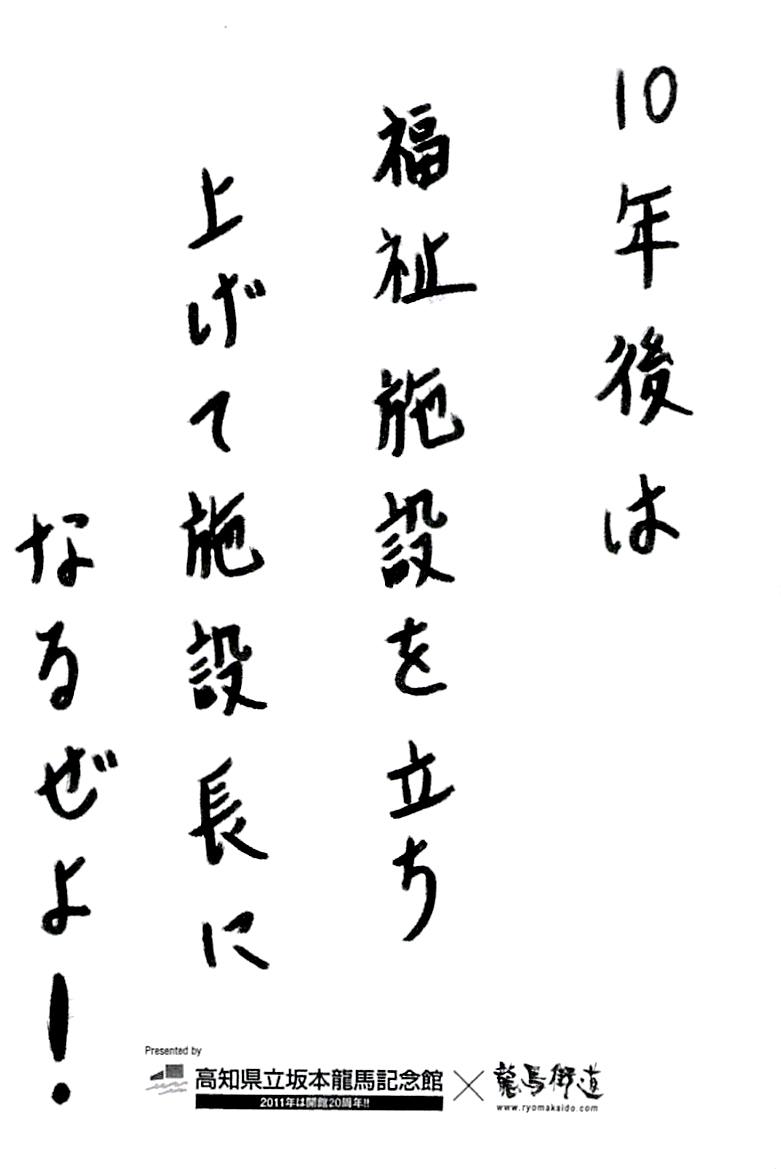 10年後は
福祉施設を立ち
上げて施設長に
なるぜよ!
Presented by
高知県立坂本龍馬記念館
2011年は開館20周年!!
×
龍馬街道
www.ryomakaido.com